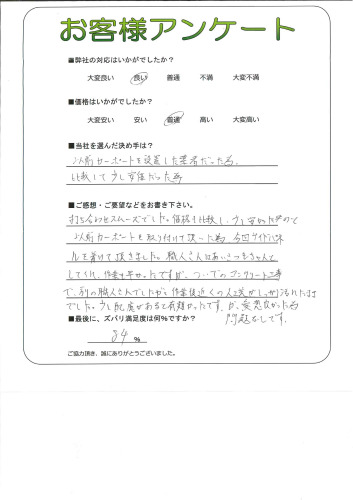 お客様アンケート
■弊社の対応はいかがでしたか?
大変良い 良い 普通 不満 大変不満
■価格はいかがでしたか?
大変安い 安い 普通 高い 大変高い
■当社を選んだ決め手は?
以前カーポートを設置した業者だった為、
比較して少し安価だった為
■ご感想・ご要望などをお書き下さい。
打ち合わせスムーズでした。価格も比較し、少し安かったので
以前カーポートを取り付けて頂いた為、今回サイドパネ
ルを着けて頂きました。職人さんはあいさつもちゃんと
してくれ、作業も早かったですが、ついでのコンクリート工事
で、別の職人さんでしたが、作業後近くの人工芝が
でした。少し配慮があると有難かったです。が、愛想良かった為
問題なしです。
■最後に、ズバリ満足度は何%ですか?
84 %
ご協力頂き、誠にありがとうございました。